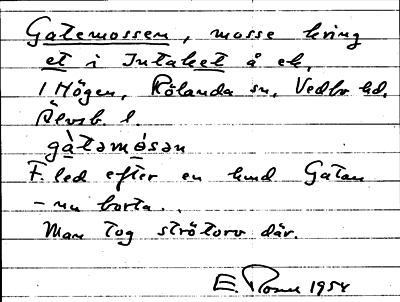 Gatemossen, mosse kring
et i Intaket å ek.
1 Högen, Rölanda sn, Vedbo hd.
Älvsb. l.
gàtəmósən
F. led efter en hund Gatan
- nu borta.
Man tog strötorv där.
E. 1954